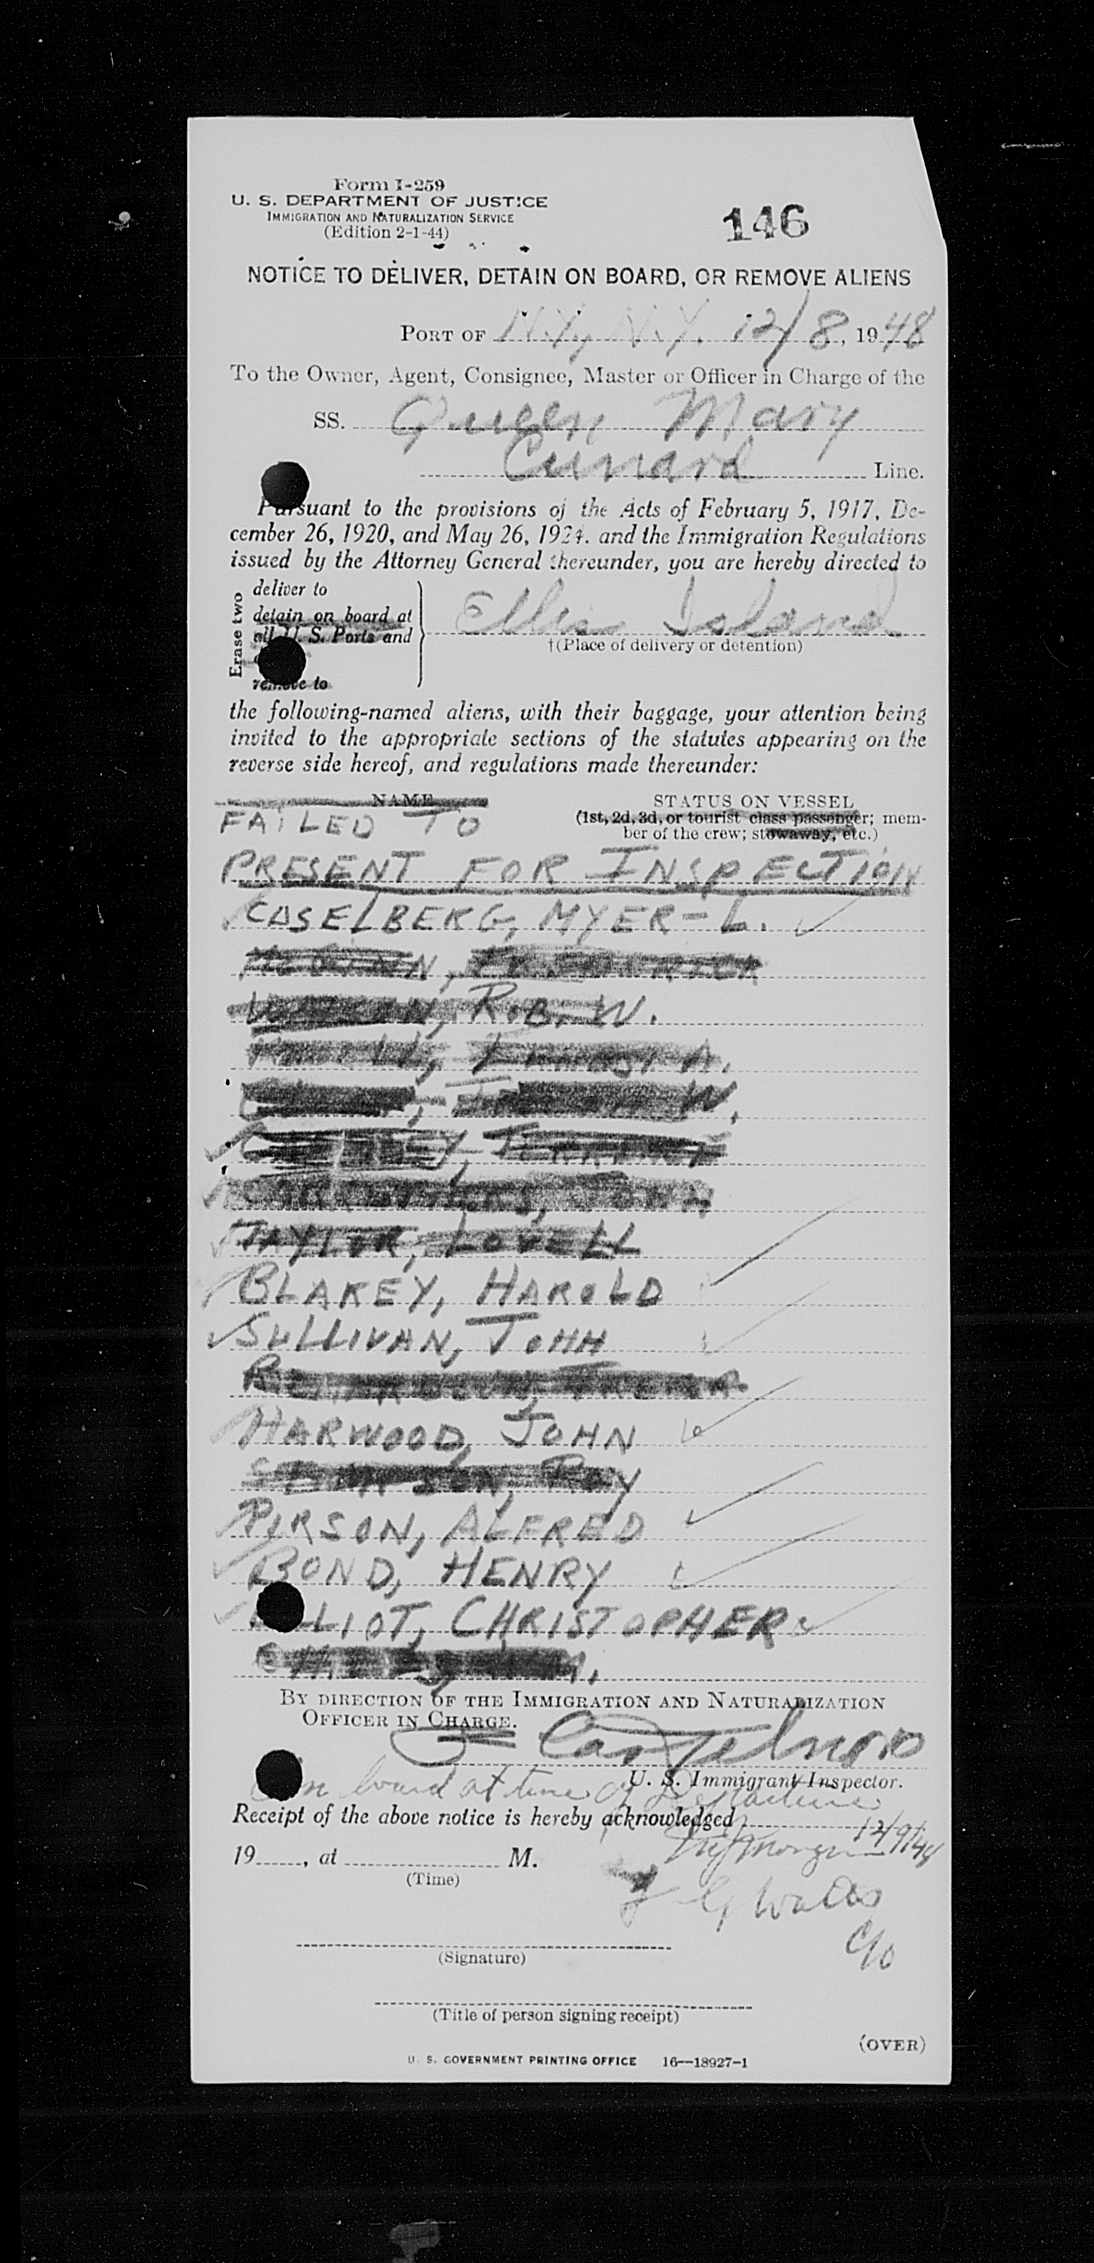 Form I-259
U. S. DEPARTMENT OF JUSTICE
IMMIGRATION AND NATURALIZATION SERVICE
(Edition 2-1-44)
146
NOTICE TO DELIVER, DETAIN ON BOARD, OR REMOVE ALIENS
PORT OF N.Y., N.Y. 12/8, 1948
To the Owner, Agent, Consignee, Master or Officer in Charge of the
SS. Queen Mary
Cunard Line.
Pursuant to the provisions of the Acts of February 5, 1917, De-
cember 26, 1920, and May 26, 1924, and the Immigration Regulations
issued by the Attorney General thereunder, you are hereby directed to
Erase two
deliver to
detain on board at
all U. S. Ports and
remove to
Ellis Island
†(Place of delivery or detention)
the following-named aliens, with their baggage, your attention being
invited to the appropriate sections of the statutes appearing on the
reverse side hereof, and regulations made thereunder:
NAME
STATUS ON VESSEL
(1st, 2d, 3d, or tourist class passenger; mem-
ber of the crew; stowaway, etc.)
FAILED TO
PRESENT FOR INSPECTION
CASELBERG, MYER-L.
R.B. W.
THOMAS A.
W.
JOHN
TAYLOR, LOVELL
BLAKEY, HAROLD
SULLIVAN, JOHN
HARWOOD, JOHN
ROY
PIRSON, ALFRED
BOND, HENRY
ELLIOT, CHRISTOPHER
BY DIRECTION OF THE IMMIGRATION AND NATURALIZATION
OFFICER IN CHARGE.
U. S. Immigrant Inspector.
On board at time of Departure
Receipt of the above notice is hereby acknowledged
12/9/48
19, at M.
(Time)
(Signature)
C/O
(Title of person signing receipt)
(OVER)
U. S. GOVERNMENT PRINTING OFFICE 16—18927-1